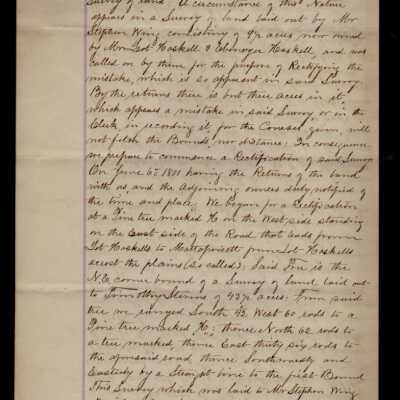 Survey of land. A circumstance of this Nature
appears in a Survey of land laid out by Mr
Stephen Wing consisting of 9½ acres now owned
by Mr Lot Haskell & Ebenezer Haskell, and was
called on by them for the purpose of Rectifying the
mistake, which is so apparent in said Survey
By the returns there is but three acres in it
which appears a mistake in said Survey or in the
Clerk in recording it, for the Courses given, will
not fetch the Bounds, nor distance; In consequence
we prepare to commence a Rectification of said Survey
On June 6th 1811 having the Returns of the land
with us and the adjoining owners duly notified of
the time and place; We begun for a Rectification
at a Pine tree marked H on the West side standing
on the East side of the Road that leads from
Lot Haskells to Mattapoisett from Lot Haskells
acrost the plains (so called); Said Tree is the
N.E corner bound of a Survey of land laid out
to Timothy Stevens of 43½ acres; From said
tree we runged South 42 West 60 rods to a
Pine tree marked H; thence North 62 rods to
a tree marked, thence East thirty six rods to
the aforesaid road, thence Southwardly and
Easterly by a Strait line to the first Bound
This Survey which was laid to Mr Stephen Wing